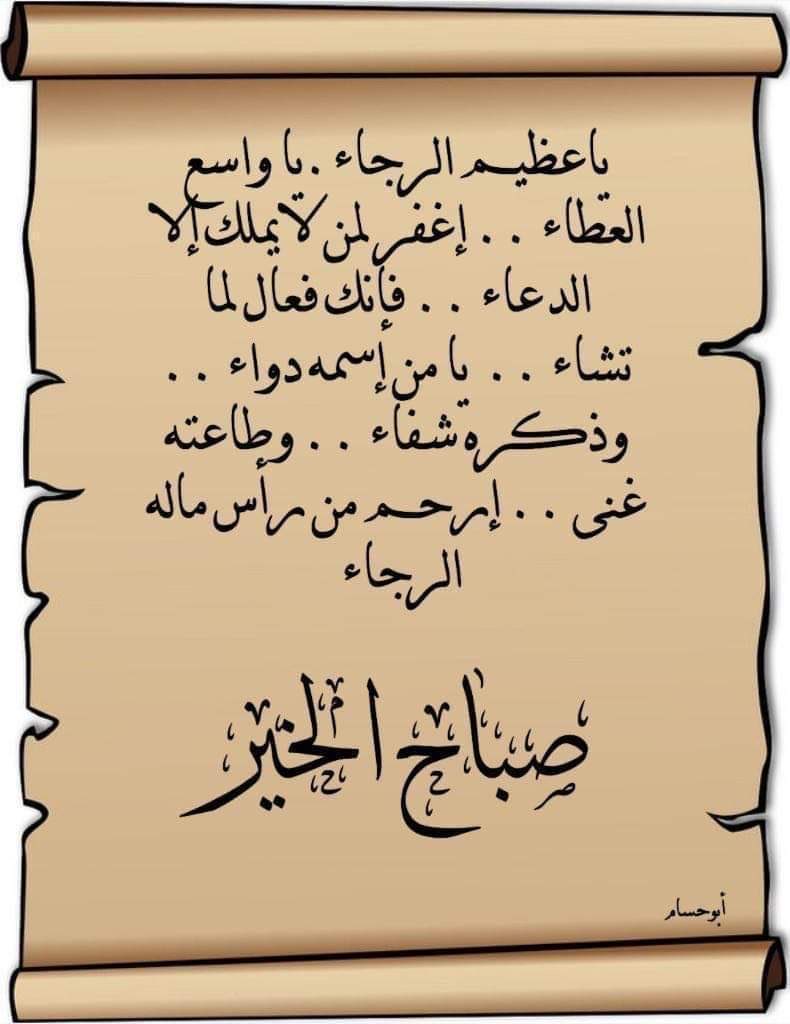 ياعظيم الرجاء .يا واسع
العطاء . . إغفر لمن لا يملك إلا
الدعاء . . فإنك فعال لما
تشاء . . يا من إسمه دواء . .
وذكره شفاء . . وطاعته
غنى . . إرحم من رأس ماله
الرجاء
صباح الخير
أبوحسام